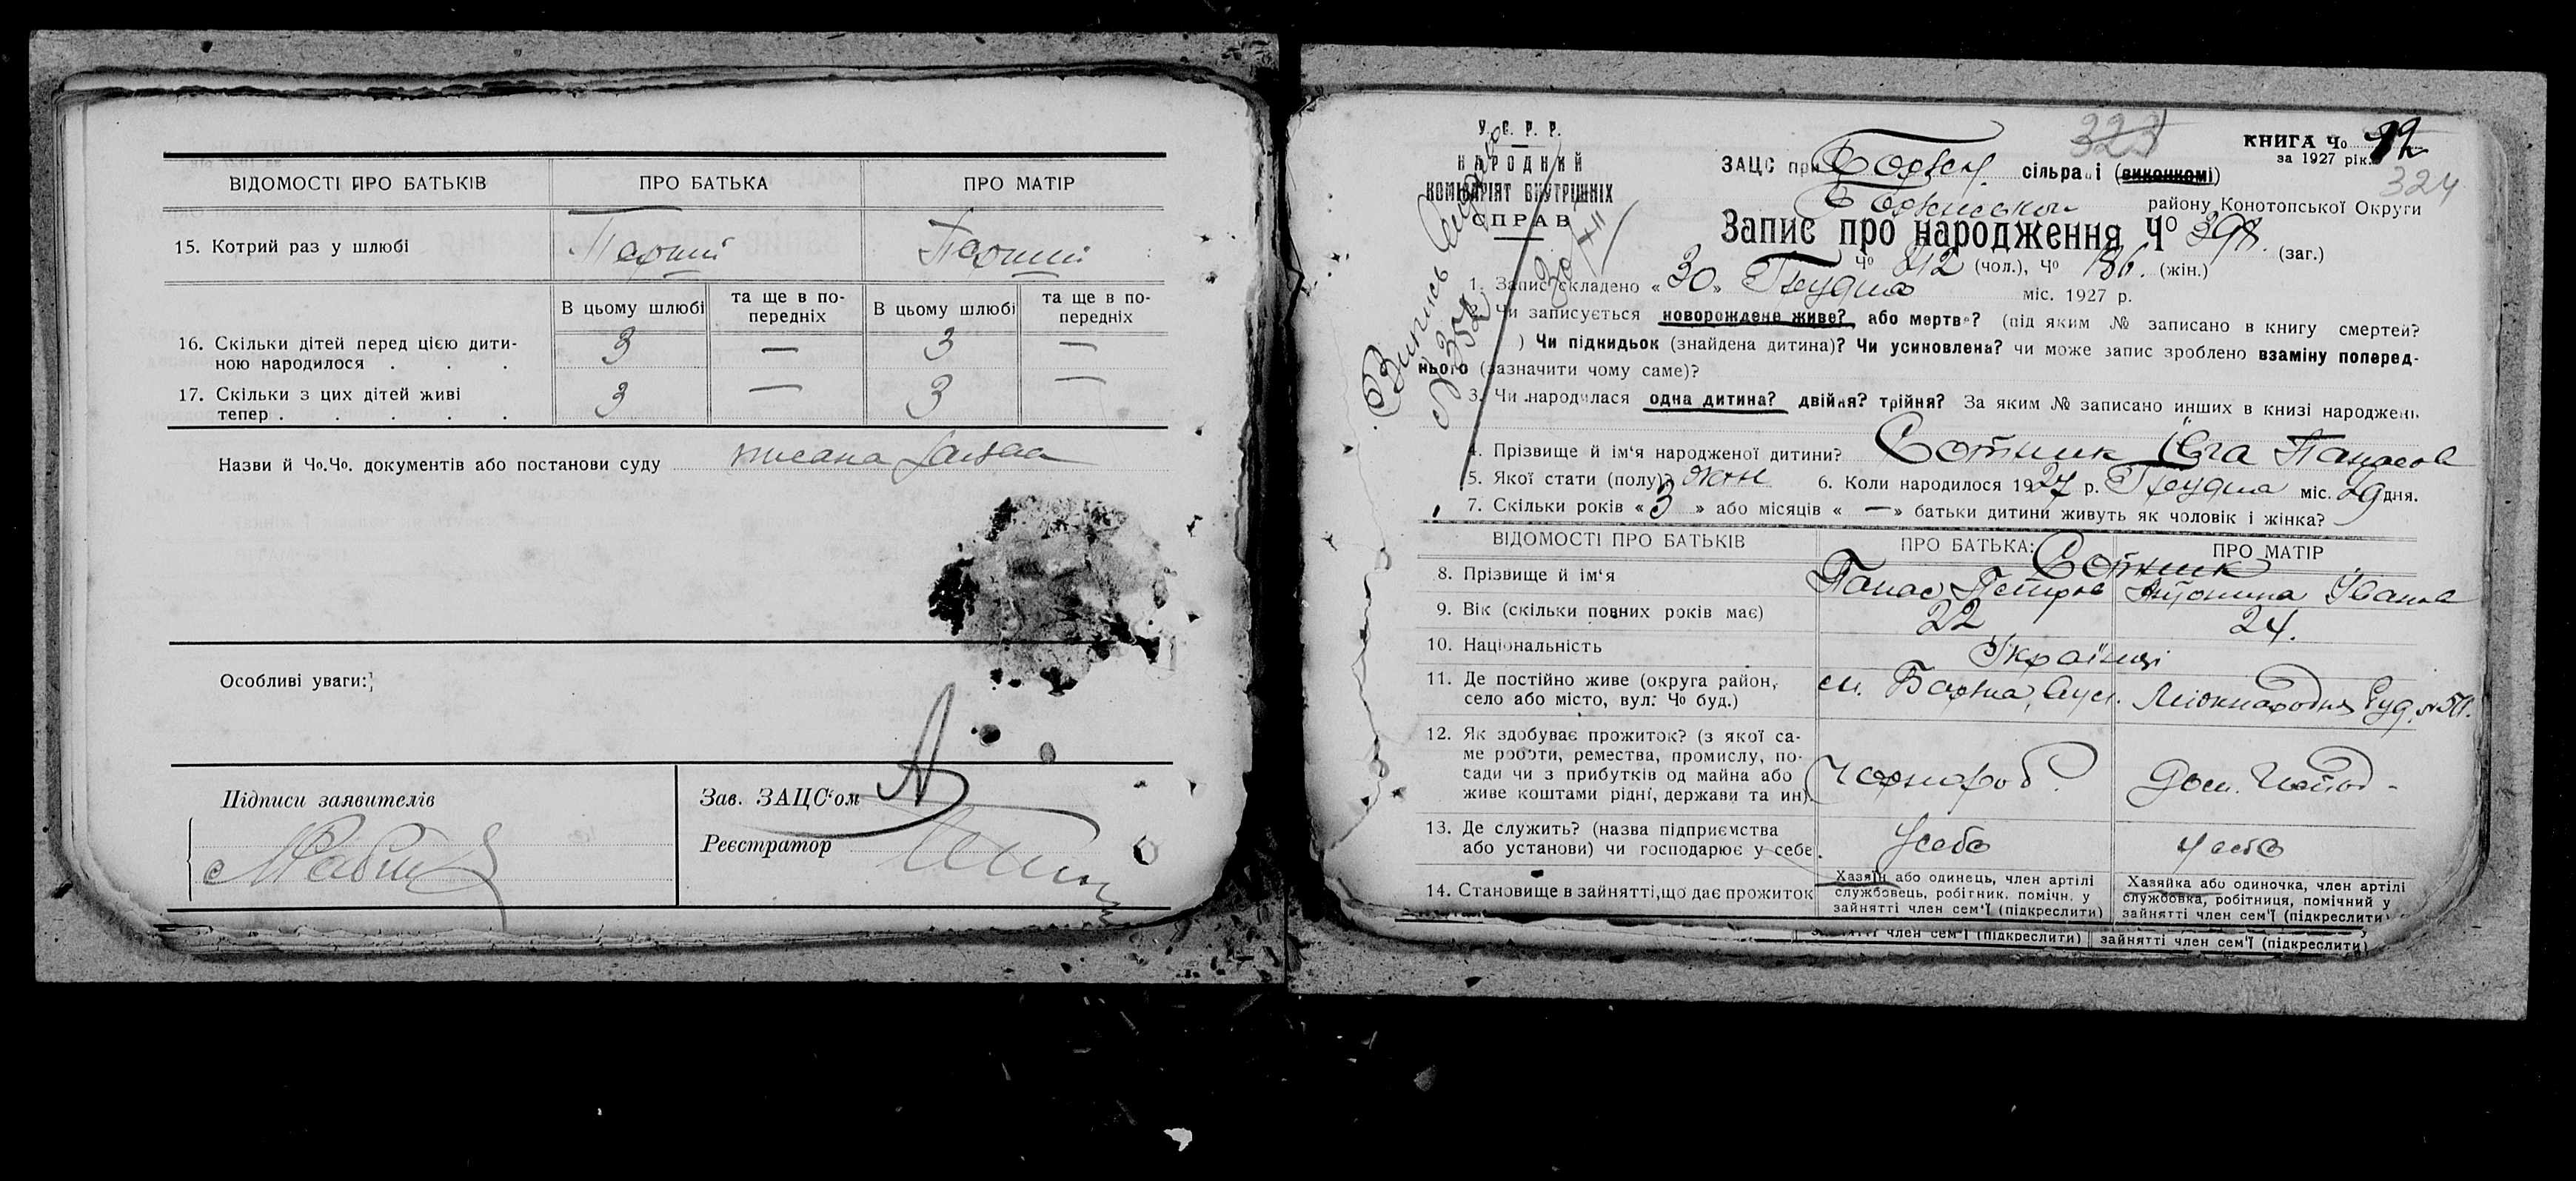 ВІДОМОСТІ ПРО БАТЬКІВ
ПРО БАТЬКА
ПРО МАТІР
15. Котрий раз у шлюбі
Перший
Перший
В цьому шлюбі
та ще в по-
передніх
В цьому шлюбі
та ще в по-
передніх
16. Скільки дітей перед цією дити-
ною народилося . . .
3 — 3 —
17. Скільки з цих дітей живі
тепер . . . . .
3 — 3 —
Назви й Чо.Чо. документів або постанови суду
Особливі уваги:
Підписи заявителів
Зав. ЗАЦС'ом
Реєстратор
У. С. Р. Р.
НАРОДНИЙ
КОМІСАРІЯТ ВНУТРІШНІХ
СПРАВ
Випись
№ 352
30/XII
323
КНИГА Чо 12
за 1927 рік.
324
ЗАЦС при сільраді (виконкомі)
району Конотопської Округи
Запис про народження Чо 398. (заг.)
Чо 212 (чол.), Чо 186. (жін.)
1. Запис складено « 30 » Грудня міс. 1927 р.
2. Чи записується новорождене живе? або мертве? (під яким № записано в книгу смертей?
) Чи підкидьок (знайдена дитина)? Чи усиновлена? чи може запис зроблено взаміну поперед-
нього (зазначити чому саме)?
3. Чи народилася одна дитина? двійня? трійня? За яким № записано инших в книзі народжень
4. Прізвище й ім'я народженої дитини? Сотник Ївга Панасов
5. Якої стати (полу)? жін 6. Коли народилося 1927 р. Грудня міс. 29 дня.
7. Скільки років « 3 » або місяців « — » батьки дитини живуть як чоловік і жінка?
ВІДОМОСТІ ПРО БАТЬКІВ
ПРО БАТЬКА:
ПРО МАТІР
Сотник
8. Прізвище й ім'я
Панас Петров
Антонина Іванов
9. Вік (скільки повних років має)
22
24.
10. Національність
Українці
11. Де постійно живе (округа район,
село або місто, вул. Чо буд.)
м. Борзна, Міжнародня буд.
12. Як здобуває прожиток? (з якої са-
ме роботи, ремества, промислу, по-
сади чи з прибутків од майна або
живе коштами рідні, держави та ин).
Чорнороб.
Дом. Господ-
13. Де служить? (назва підприємства
або установи) чи господарює у себе.
Усебе
Усебе
14. Становище в зайнятті, що дає прожиток
Хазяїн або одинець, член артілі
службовець, робітник, помічн. у
зайнятті член сем'ї (підкреслити)
Хазяйка або одиночка, член артілі
службовка, робітниця, помічний у
зайнятті член сем'ї (підкреслити)
зайнятті член сем'ї (підкреслити)
зайнятті член сем'ї (підкреслити)